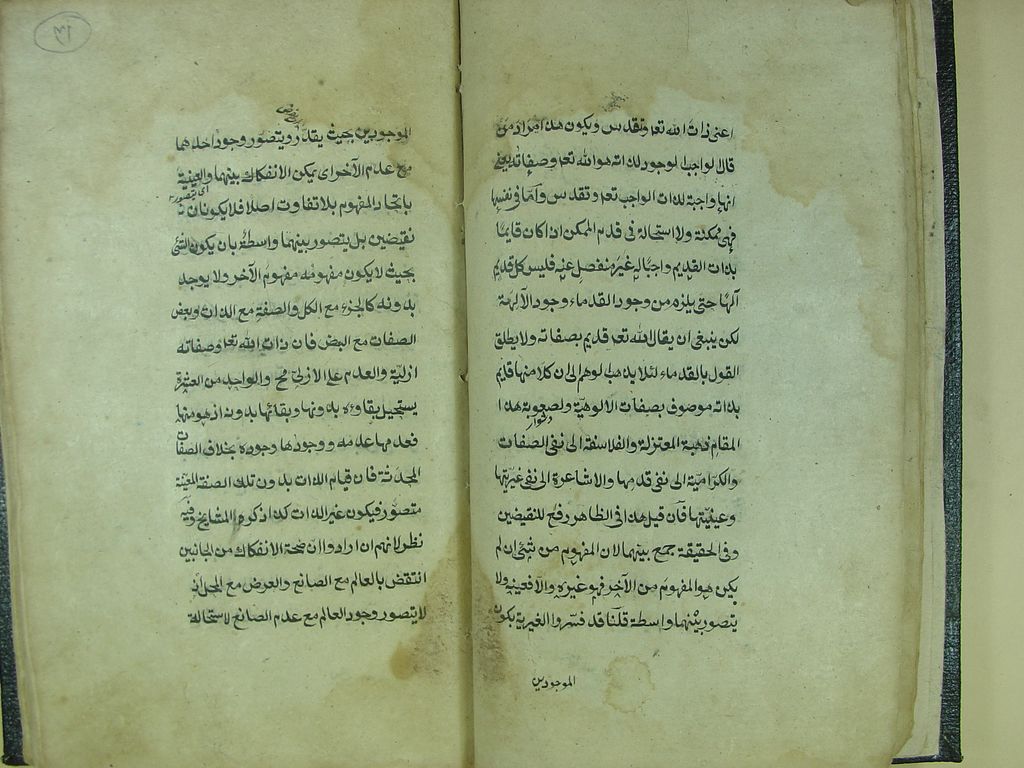 اعنى ذات الله تعا وتقدس ويكون هذا مراد من
قال الواجب الموجود لذاته هو الله تعا وصفاته يعنى
انها واجبة لذات الواجب تعا وتقدس واما فى نفسها
فهى ممكنة ولا استحالة فى قدم الممكن اذا كان قايما
بذات القديم واجبا له غير منفصل عنه فليس كل قديم
آلها حتى يلزم من وجود القدماء وجود الآلهة
لكن ينبغى ان يقال الله تعا قديم بصفاته ولا يطلق
القول بالقدماء لئلا يذهب الوهم الى ان كلا منها قديم
بذاته موصوف بصفات الالوهية ولصعوبة هذا
دشوار
المقام ذهبة المعتزلة والفلاسفة الى نفى الصفات
والكرامية الى نفى قدمها والاشاعرة الى نفى غيريتها
وعينيتها فان قيل هذا فى الظاهر رفع للنقيضين
وفى الحقيقة جمع بينهما لان المفهوم من شئ ان لم
يكن هو المفهوم من الآخر فهو غيره والا فعينه ولا
يتصور بينهما واسطة قلنا قد فسروا الغيرية بكون
الموجودين
١٣
الموجودين بحيث يقدر ويتصور وجود احدهما
مع عدم الآخر اى يمكن الانفكاك بينهما والعينية
باتحاد المفهوم بلا تفاوت اصلا فلا يكونان
نقيضين بل يتصور بينهما واسطة بان يكون الشئ
بحيث لا يكون مفهومه مفهوم الآخر ولا يوجد
بدونه كالجزء مع الكل والصفة مع الذات وبعض
الصفات مع البعض فان ذات الله تعا وصفاته
ازلية والعدم على الازلى مح والواحد من العشرة
يستحيل بقاؤه بدونها وبقائها بدونه اذ هو منها
فعدمها عدمه ووجودها وجوده بخلاف الصفات
المحدثة فان قيام الذات بدون تلك الصفة المعينة
متصور فيكون غير الذات كذا ذكره المشايخ وفيه
نظر لانهم ان ارادوا ان صحة الانفكاك من الجانبين
انتقض بالعالم مع الصانع والعرض مع المحل اذ
لا يتصور وجود العالم مع عدم الصانع لاستحالة